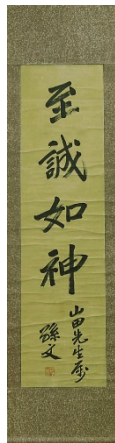 至誠如神
山田先生属
孫文